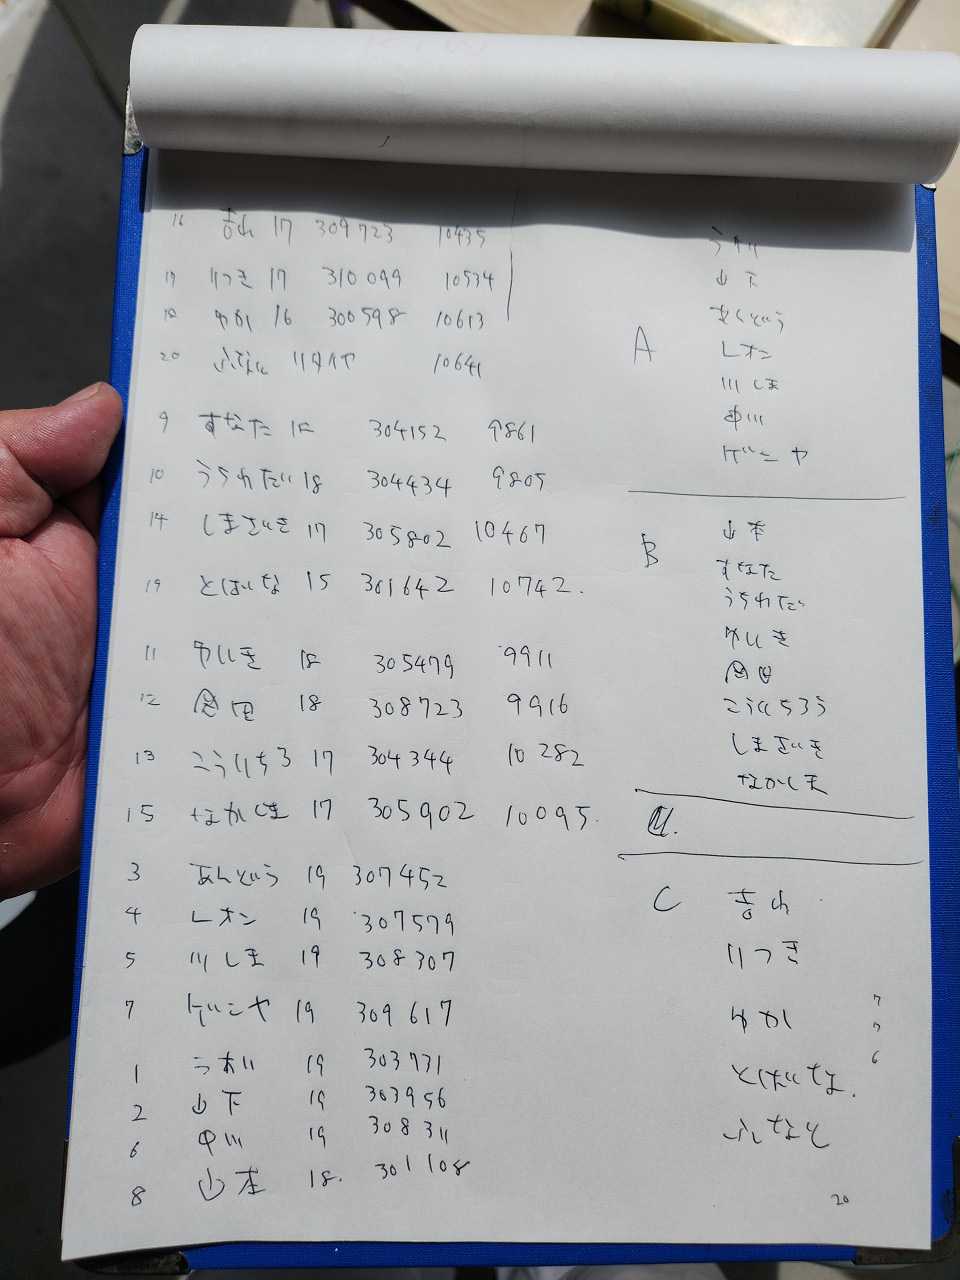 16 吉山 17 309723 10435
17 りつき 17 310099 10534
18 ゆかし 16 300598 10613
20 ふなと リタイヤ 10641
9 すなた 18 304152 9861
10 うちわだい 18 304434 9805
14 しまざき 17 305802 10467
19 とばいな 15 301642 10742.
11 ゆいき 18 305479 9911
12 合田 18 308723 9916
13 こういちろ 17 304344 10282
15 なかじま 17 305902 10095.
3 あんどう 19 307452
4 レオン 19 307579
5 川しま 19 308307
7 ゲンヤ 19 309617
1 うおい 19 303731
2 山下 19 303956
6 中川 19 308311
8 山本 18. 301108
A
山下
あんどう
レオン
川しま
中川
ゲンヤ
B
山本
すなた
うちわだい
ゆいき
合田
こういちろう
しまざき
なかじま
C
吉山
りつき
ゆか
とばいな.
ふなと
7
7
6
20